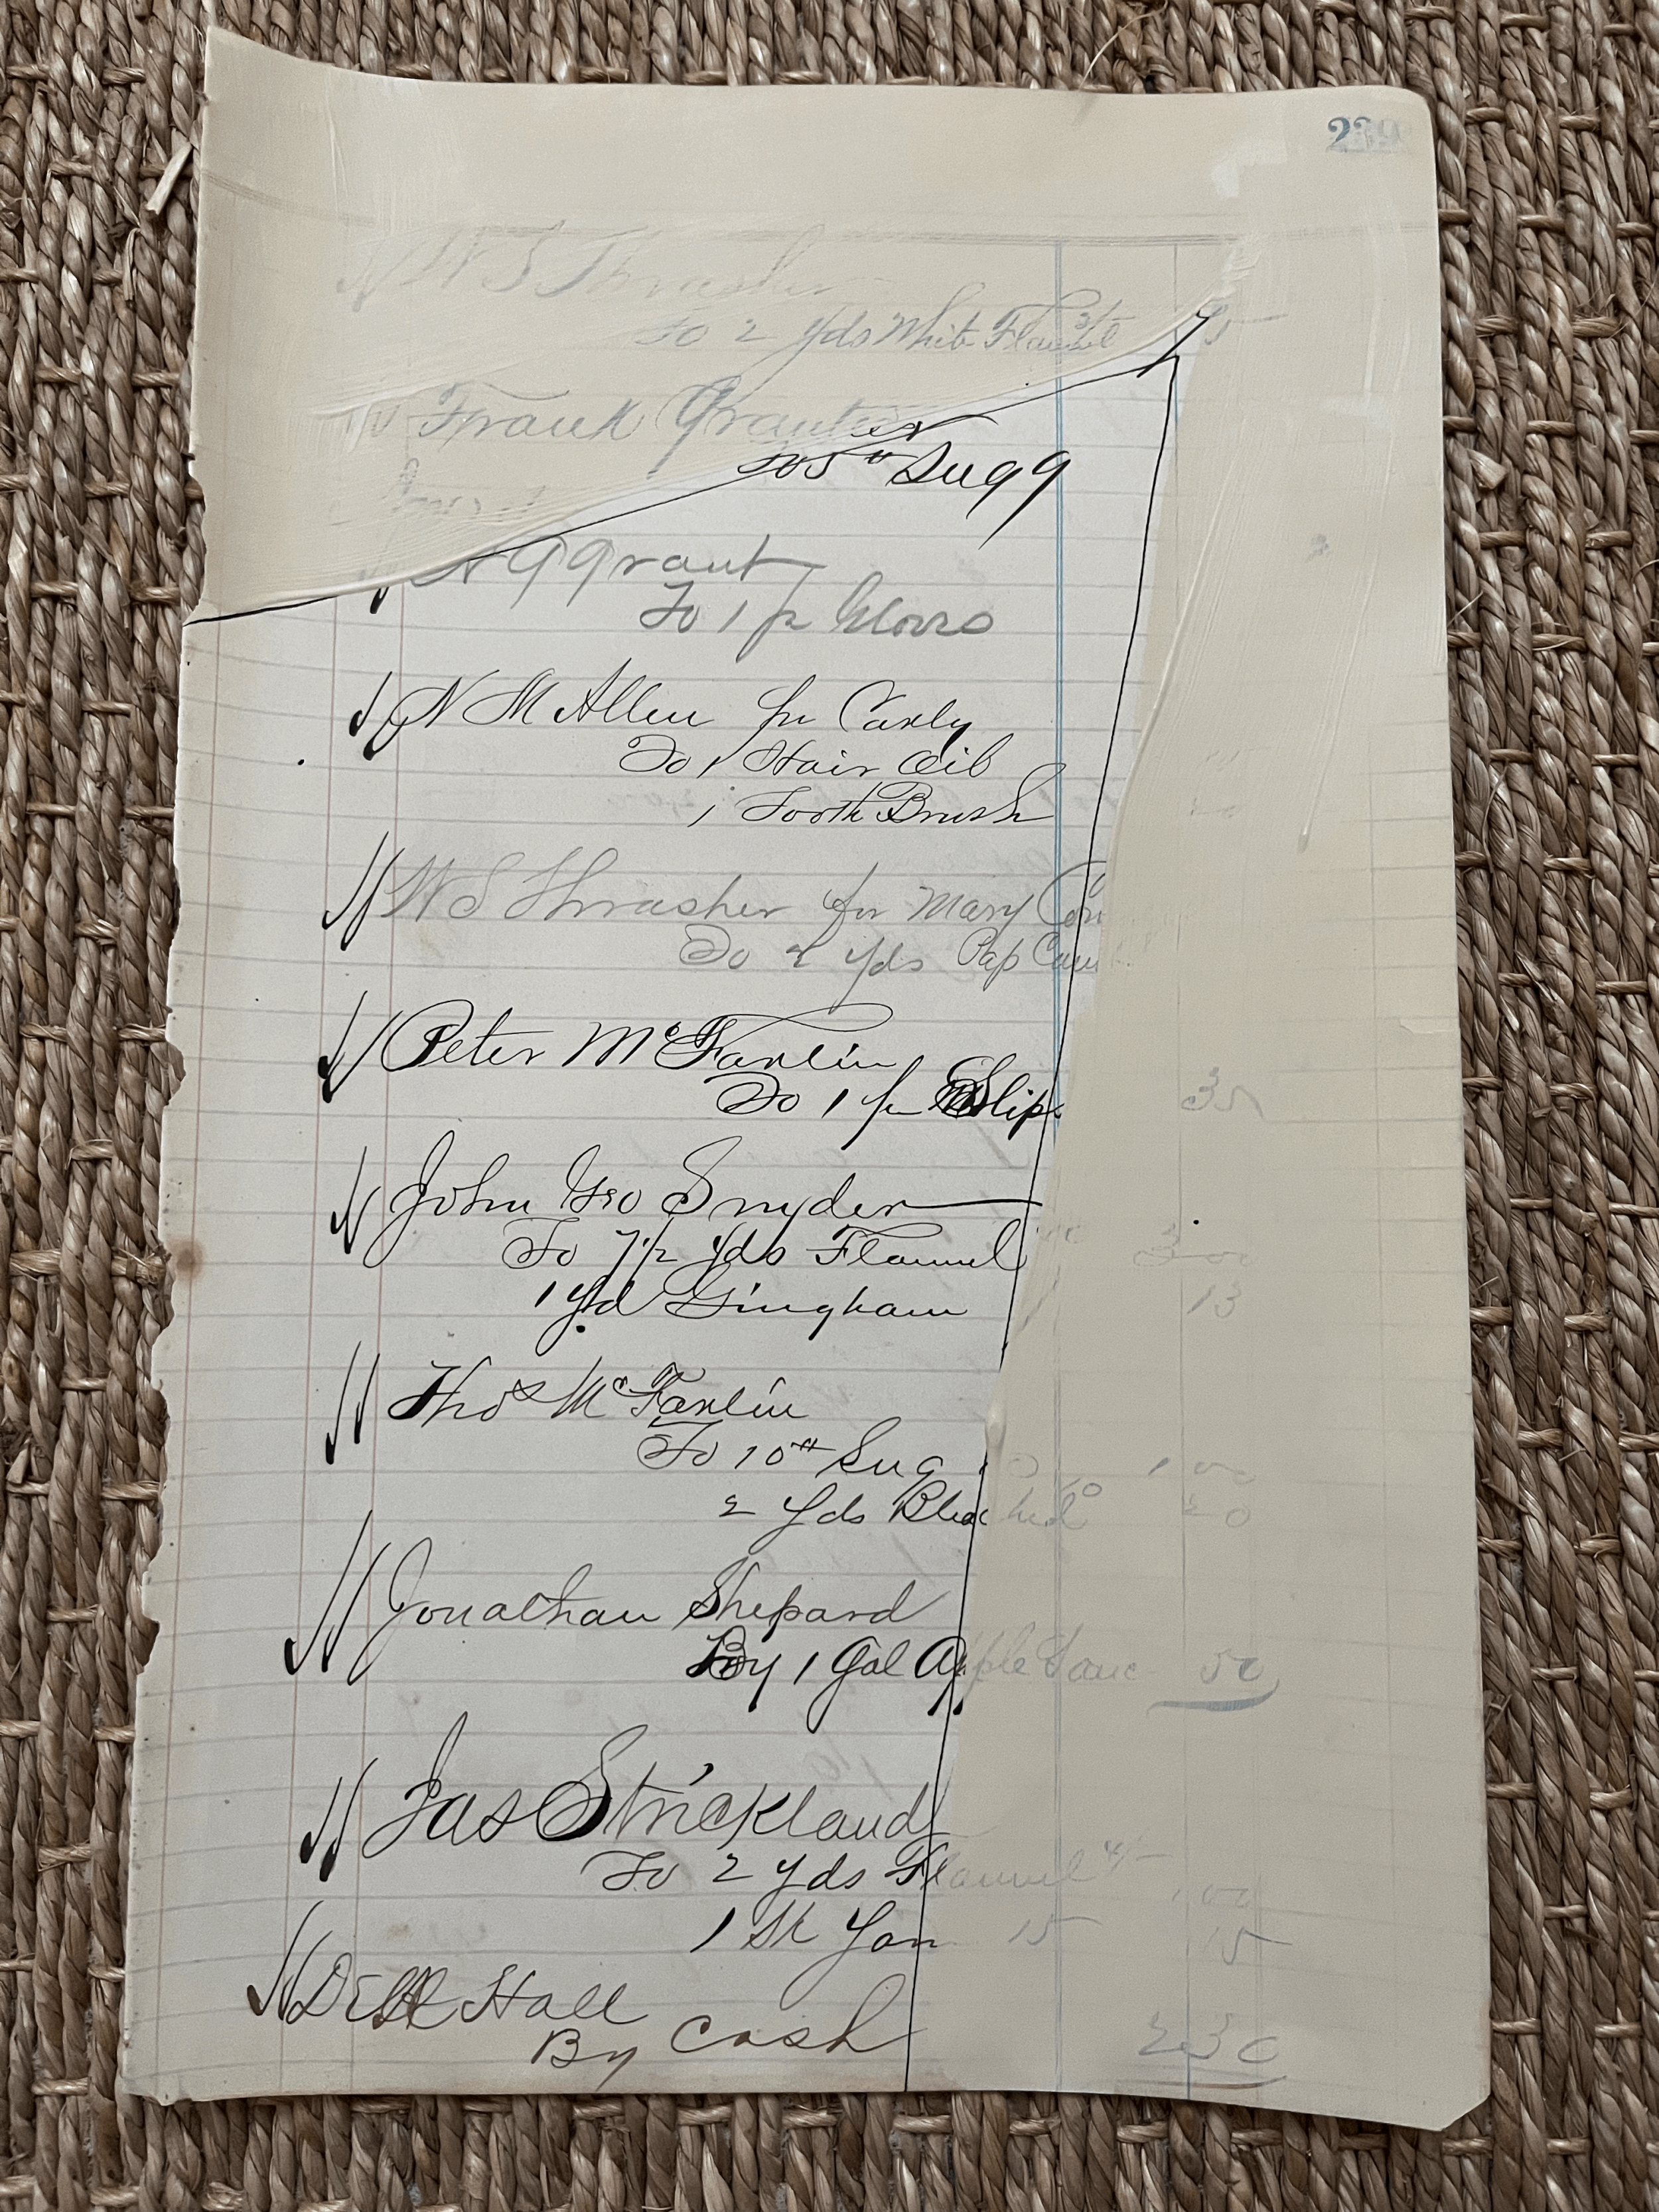 W S Thrasher
To 2 yds White Flannel 3/ 75
Frank
To 5# Sug 9
A G Grant
To 1 pr
N M Allen for Carly
To 1 Hair Oil
1 Tooth Brush
W S Thrasher for Mary
To 2 yds Pap Cam
Peter McFarlin
To 1 pr Slip
John Geo Snyder
To 7 1/2 yds Flannel 3 00
1 yd Gingham 13
Thos McFarlin
To 10# Sug 1 00
2 yds Bleached 10 20
Jonathan Shepard
By 1 Gal Apple Sauc 50
Jas Strickland
To 2 yds Flannel 4/- 1 00
1 Sk Yan 15 15
Hall
By Cash 2 30